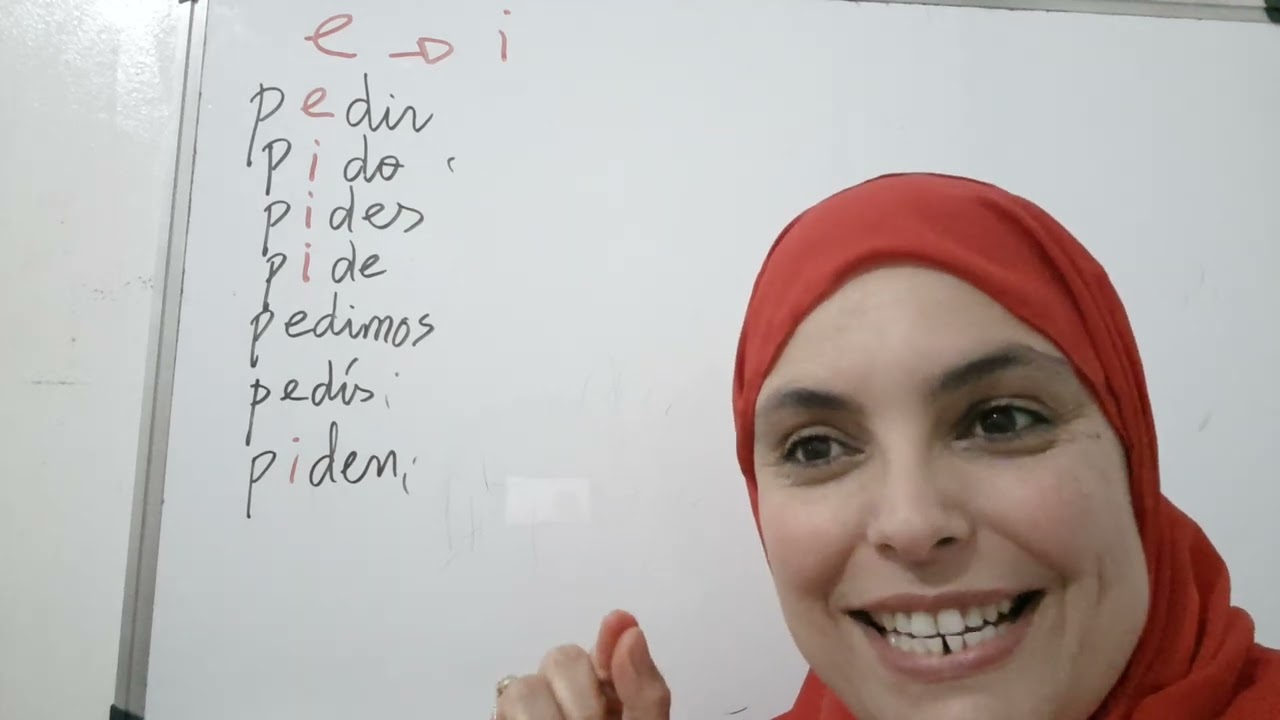 e → i
pedir
pido
pides
pide
pedimos
pedís
piden